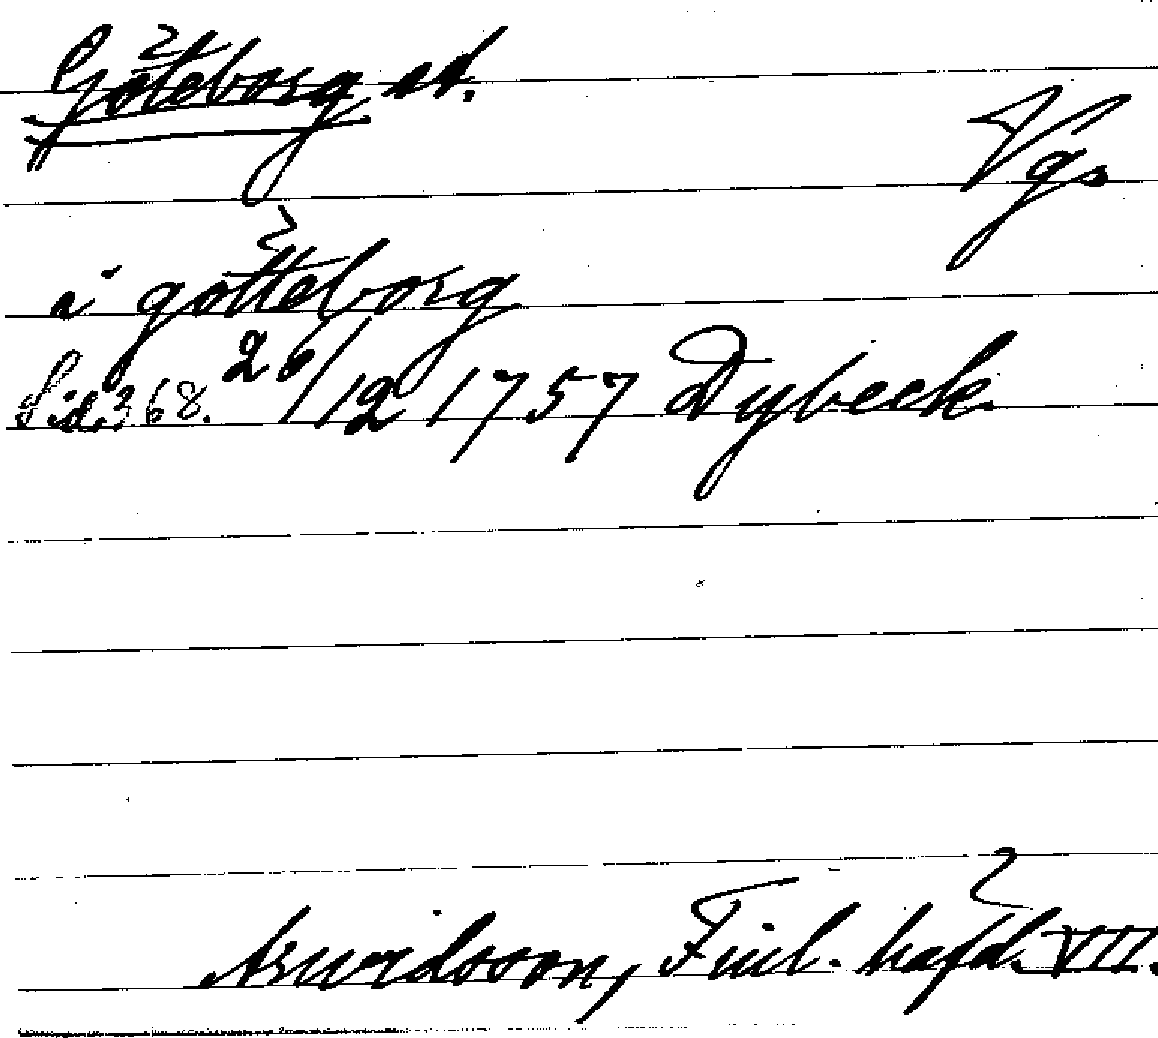 Göteborg st.
Vg.
i götteborg
Sid. 368. 26/12 1757 Dybeck
Arwidsson, Finl. häfd. VII.